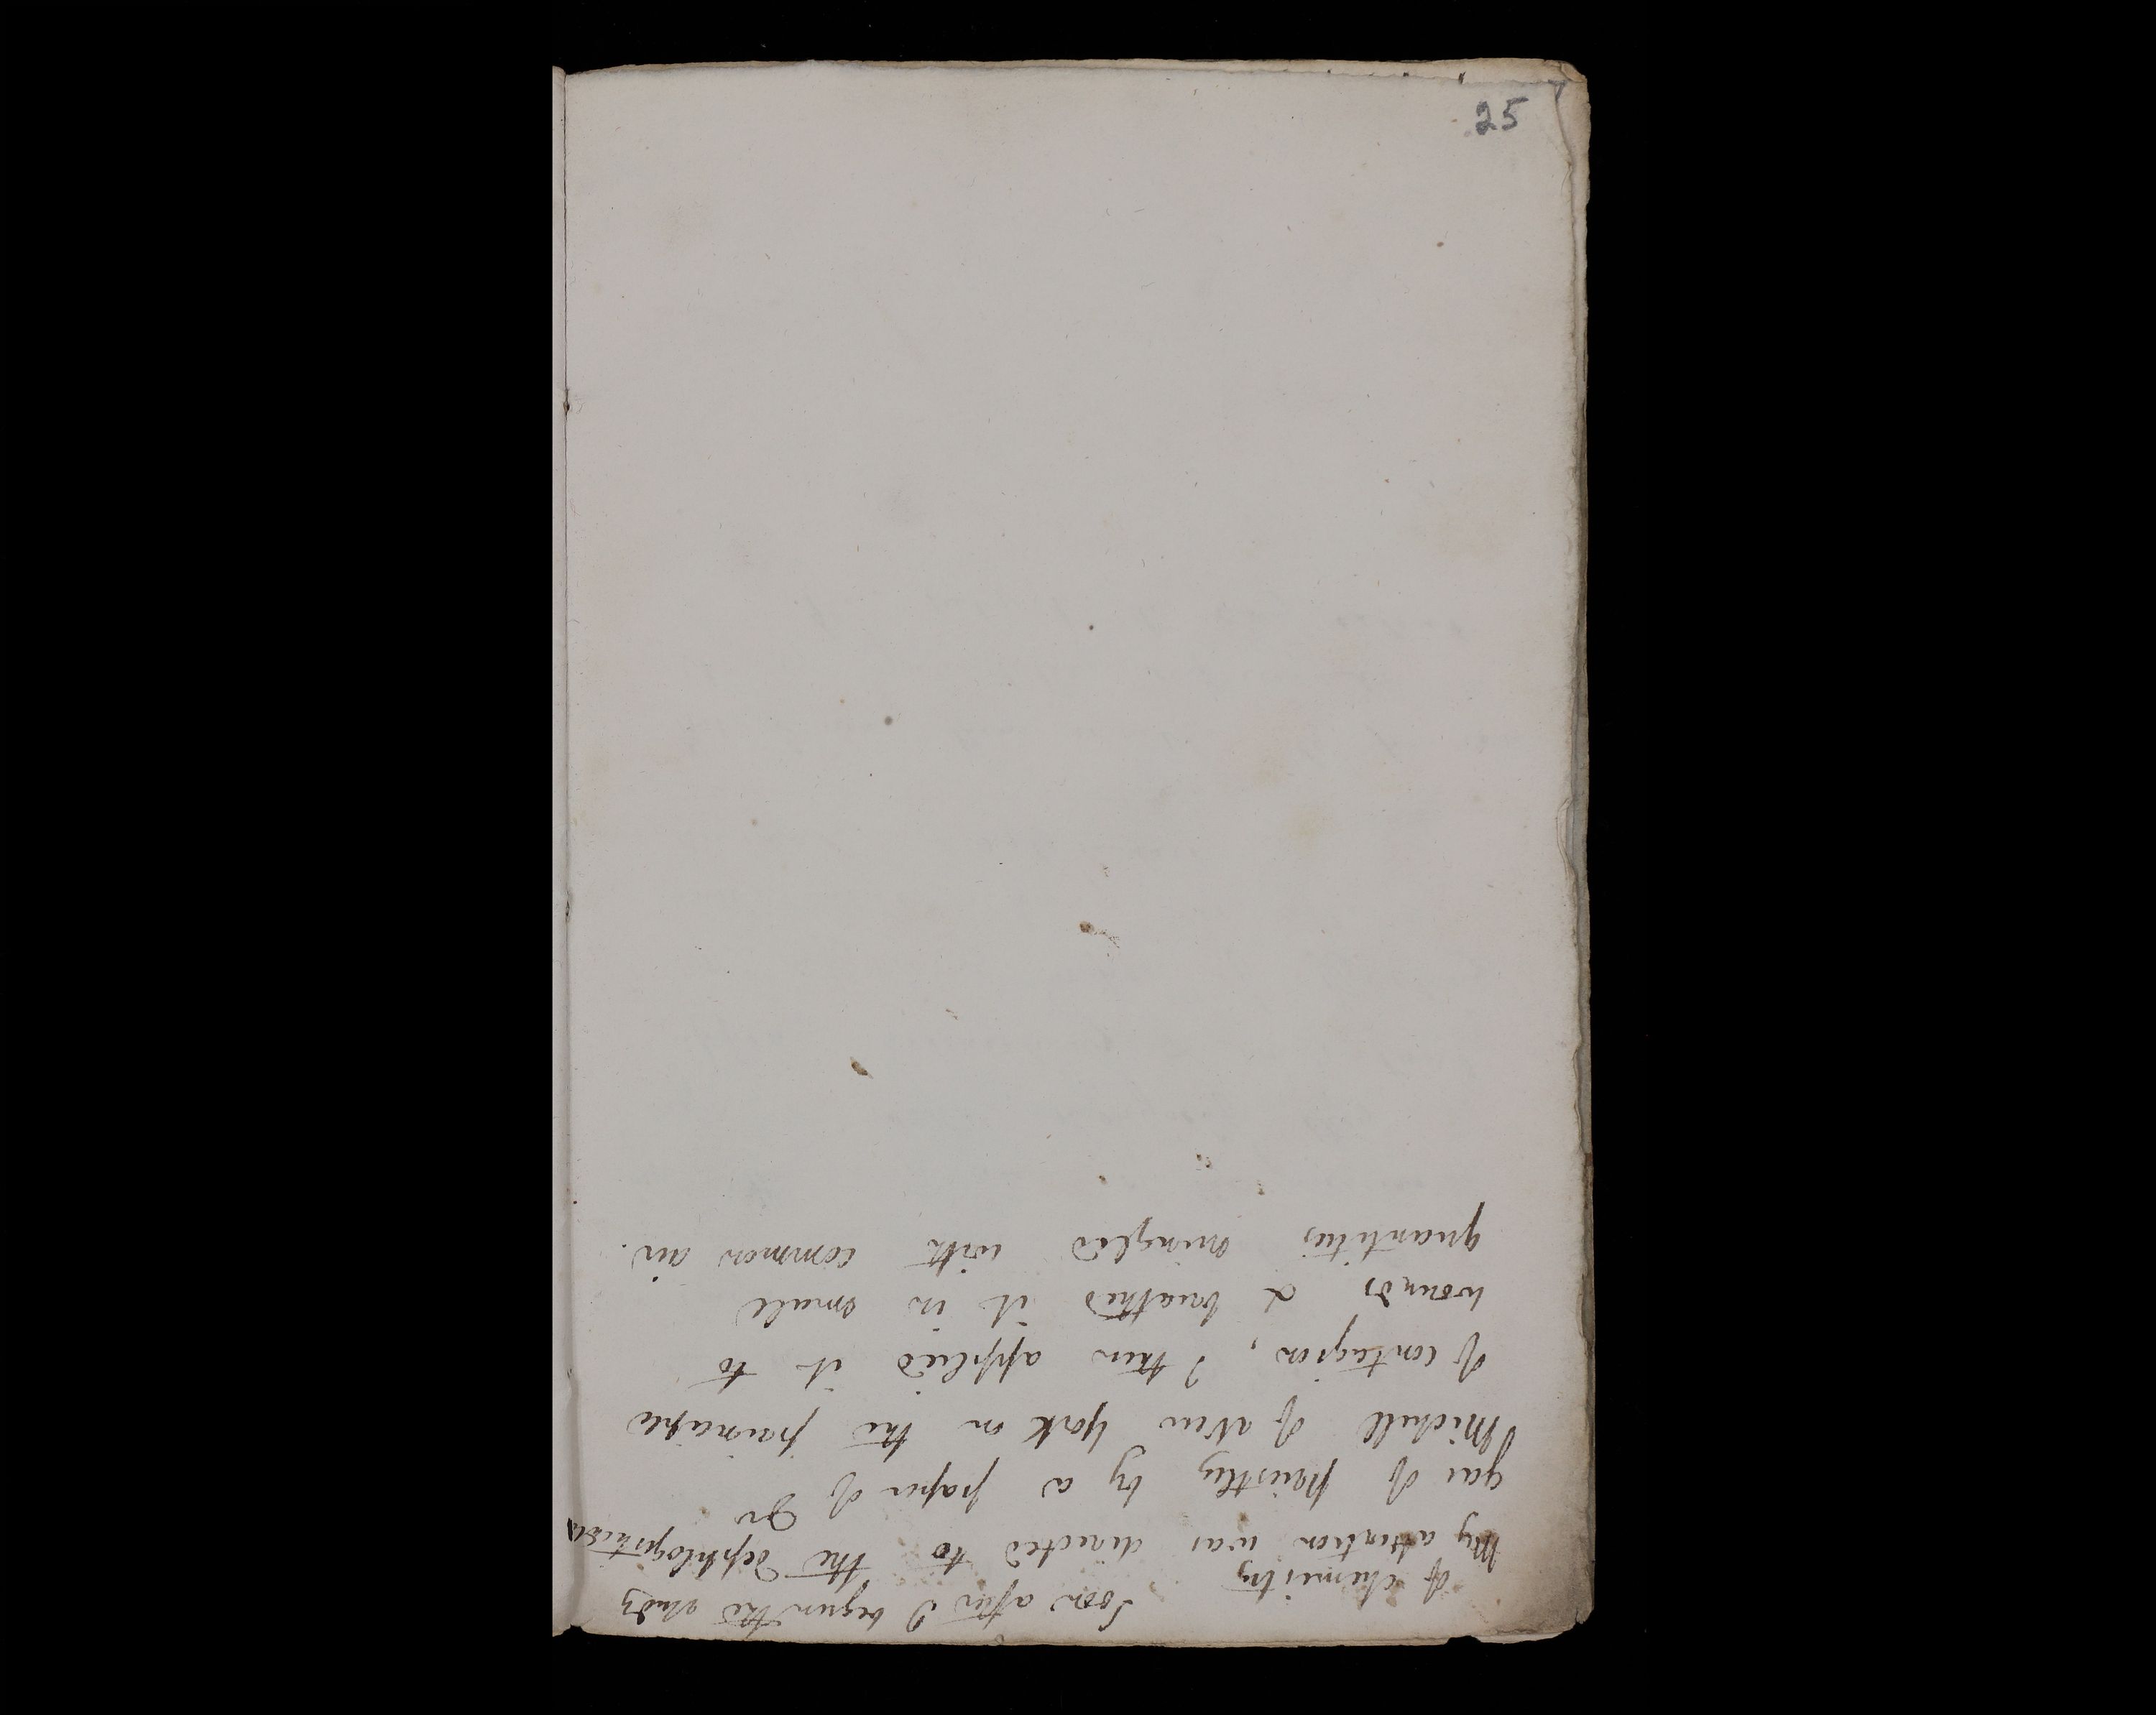 25
Soon after I begun the study
of chemistry
My attention was directed to the dephlogisticated
gas of Priestley by a paper of Dr
Michell of New York on the principle
of contagion, I then applied it to
wounds & breathed it in small
quantities mingled with common air.